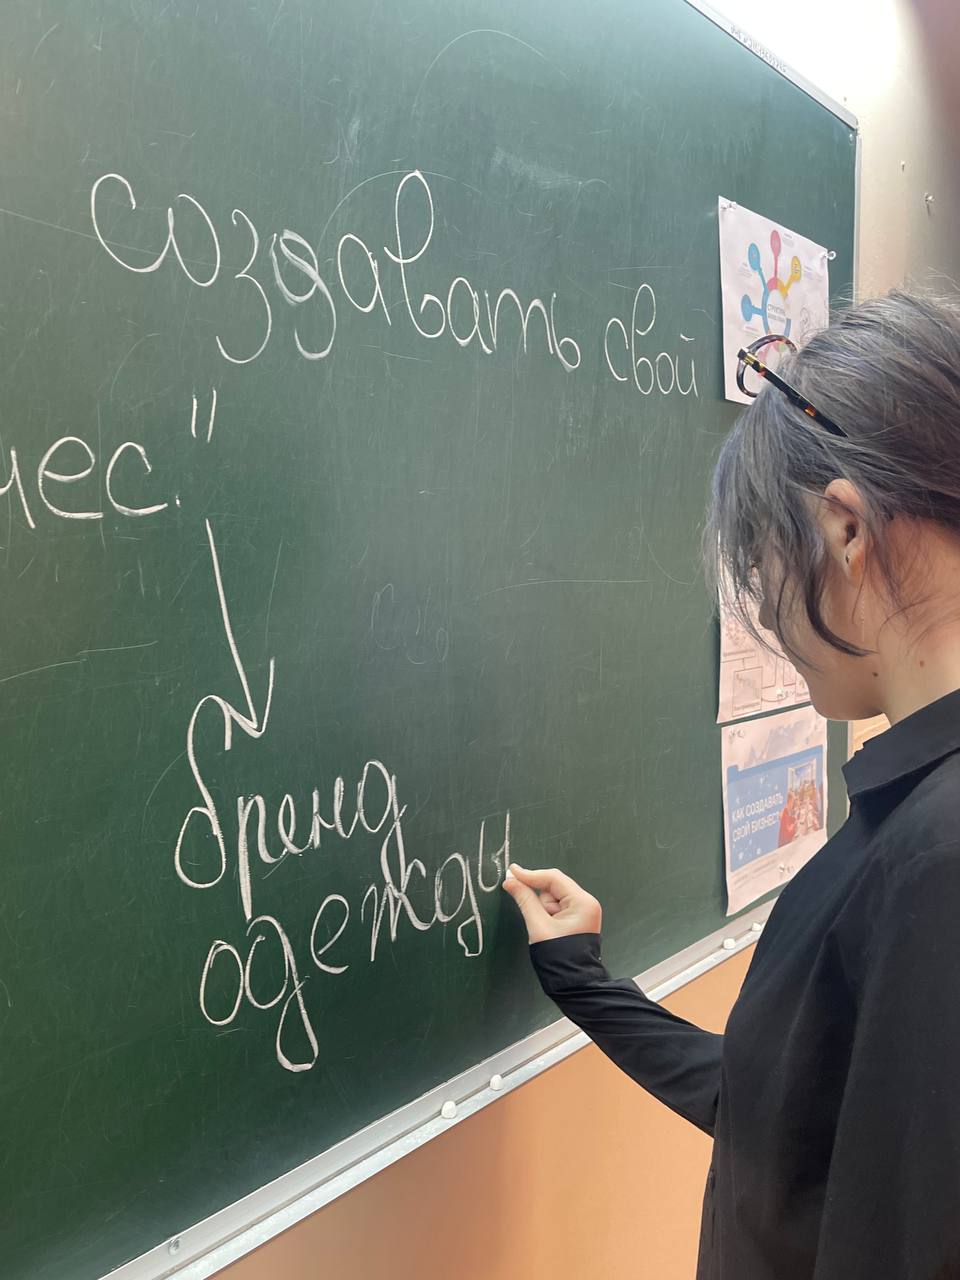 создавать свой
нес."
бренд
одежды
СТРУКТУРА
КАК СОЗДАВАТЬ
СВОЙ БИЗНЕС?